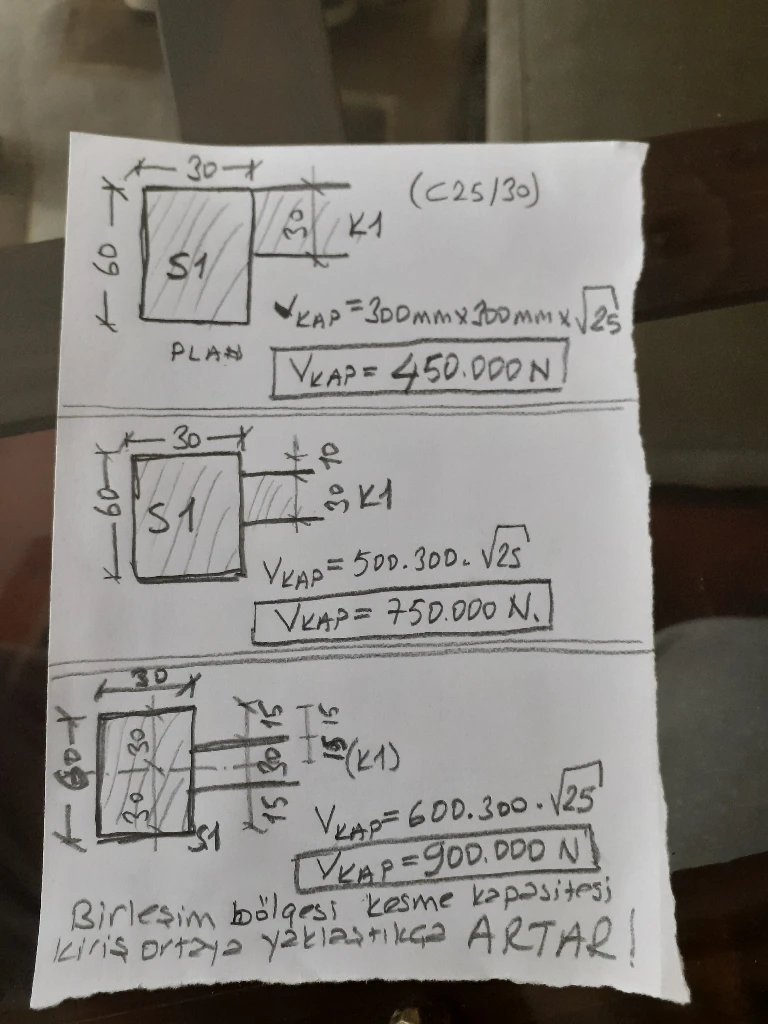 30
(C25/30)
60
S1
30
K1
PLAN
VKAP=300mmx300mmx√25
VKAP= 450.000N
30
10
60
S1
30 K1
VKAP=500.300.√25
VKAP= 750.000 N.
30
15
15
60
30
30
15
(K1)
30
15
S1
VKAP=600.300.√25
VKAP=900.000 N
Birleşim bölgesi kesme kapasitesi
kiriş ortaya yaklaştıkça ARTAR!